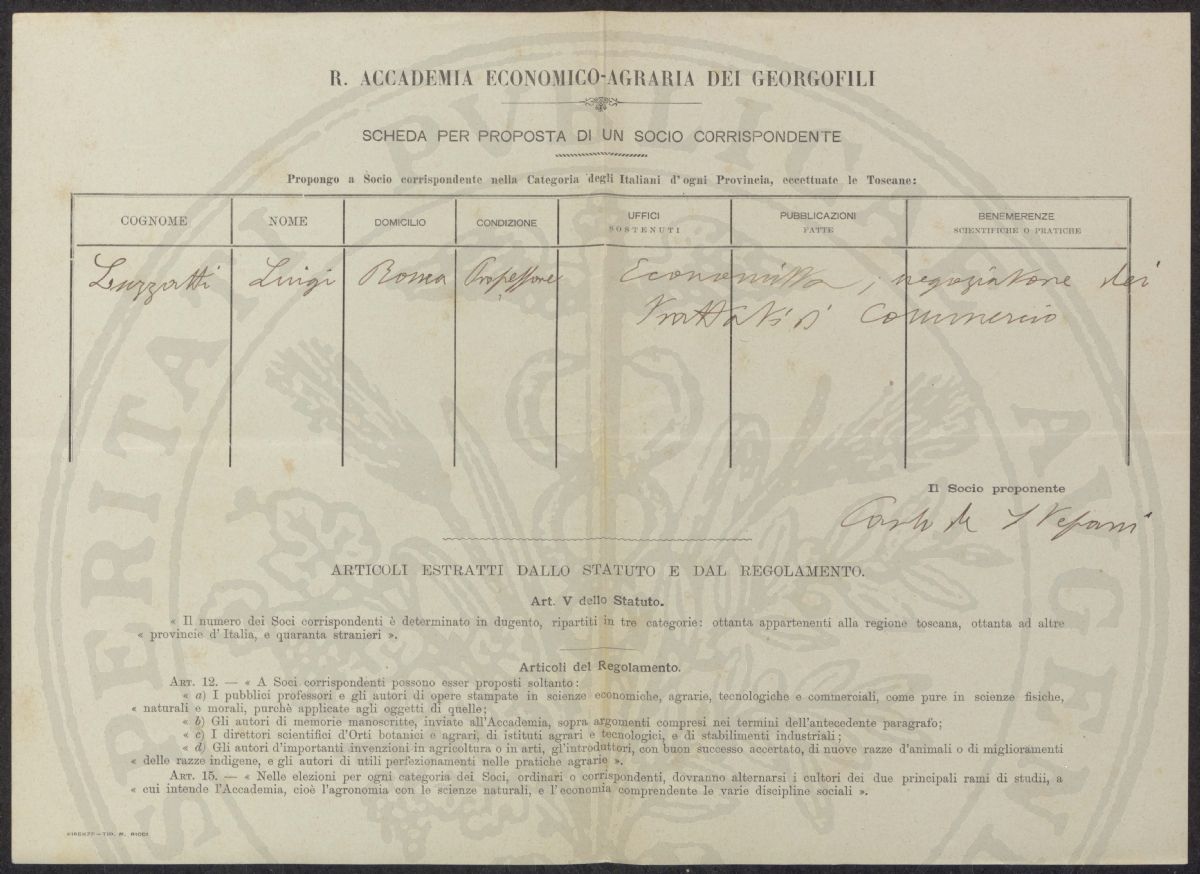 R. ACCADEMIA ECONOMICO-AGRARIA DEI GEORGOFILI
SCHEDA PER PROPOSTA DI UN SOCIO CORRISPONDENTE
Propongo a Socio corrispondente nella Categoria degli Italiani d'ogni Provincia, eccettuate le Toscane:
COGNOME NOME DOMICILIO CONDIZIONE UFFICI SOSTENUTI PUBBLICAZIONI FATTE BENEMERENZE SCIENTIFICHE O PRATICHE
Luzzatti Luigi Roma Professore Economista, negoziatore dei
trattati di Commercio
Il Socio proponente
Carlo de Stefani
ARTICOLI ESTRATTI DALLO STATUTO E DAL REGOLAMENTO.
Art. V dello Statuto.
« Il numero dei Soci corrispondenti è determinato in dugento, ripartiti in tre categorie: ottanta appartenenti alla regione toscana, ottanta ad altre
« provincie d'Italia, e quaranta stranieri ».
Articoli del Regolamento.
ART. 12. — « A Soci corrispondenti possono esser proposti soltanto:
« a) I pubblici professori e gli autori di opere stampate in scienze economiche, agrarie, tecnologiche e commerciali, come pure in scienze fisiche,
« naturali e morali, purchè applicate agli oggetti di quelle;
« b) Gli autori di memorie manoscritte, inviate all'Accademia, sopra argomenti compresi nei termini dell'antecedente paragrafo;
« c) I direttori scientifici d'Orti botanici e agrari, di istituti agrari e tecnologici, e di stabilimenti industriali;
« d) Gli autori d'importanti invenzioni in agricoltura o in arti, gl'introduttori, con buon successo accertato, di nuove razze d'animali o di miglioramenti
« delle razze indigene, e gli autori di utili perfezionamenti nelle pratiche agrarie ».
ART. 15. — « Nelle elezioni per ogni categoria dei Soci, ordinari o corrispondenti, dovranno alternarsi i cultori dei due principali rami di studii, a
« cui intende l'Accademia, cioè l'agronomia con le scienze naturali, e l'economia comprendente le varie discipline sociali ».
FIRENZE—TIP. M. RICCI
PROSPERITATI PUBLICAE AVGENDAE